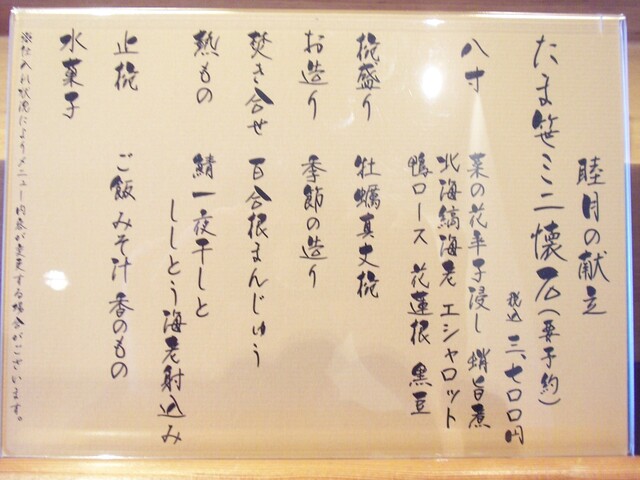 睦月の献立
たま笹ミニ懐石(要予約)
税込 三、七〇〇円
八寸 菜の花辛子浸し 蛸旨煮
北海縞海老 エシャロット
鴨ロース 花蓮根 黒豆
椀盛り 牡蠣真丈椀
お造り 季節の造り
焚き合せ 百合根まんじゅう
熱もの 鯖一夜干しと
ししとう海老射込み
止椀 ご飯みそ汁 香のもの
水菓子
※仕入れ状況によりメニュー内容が変更する場合がございます。